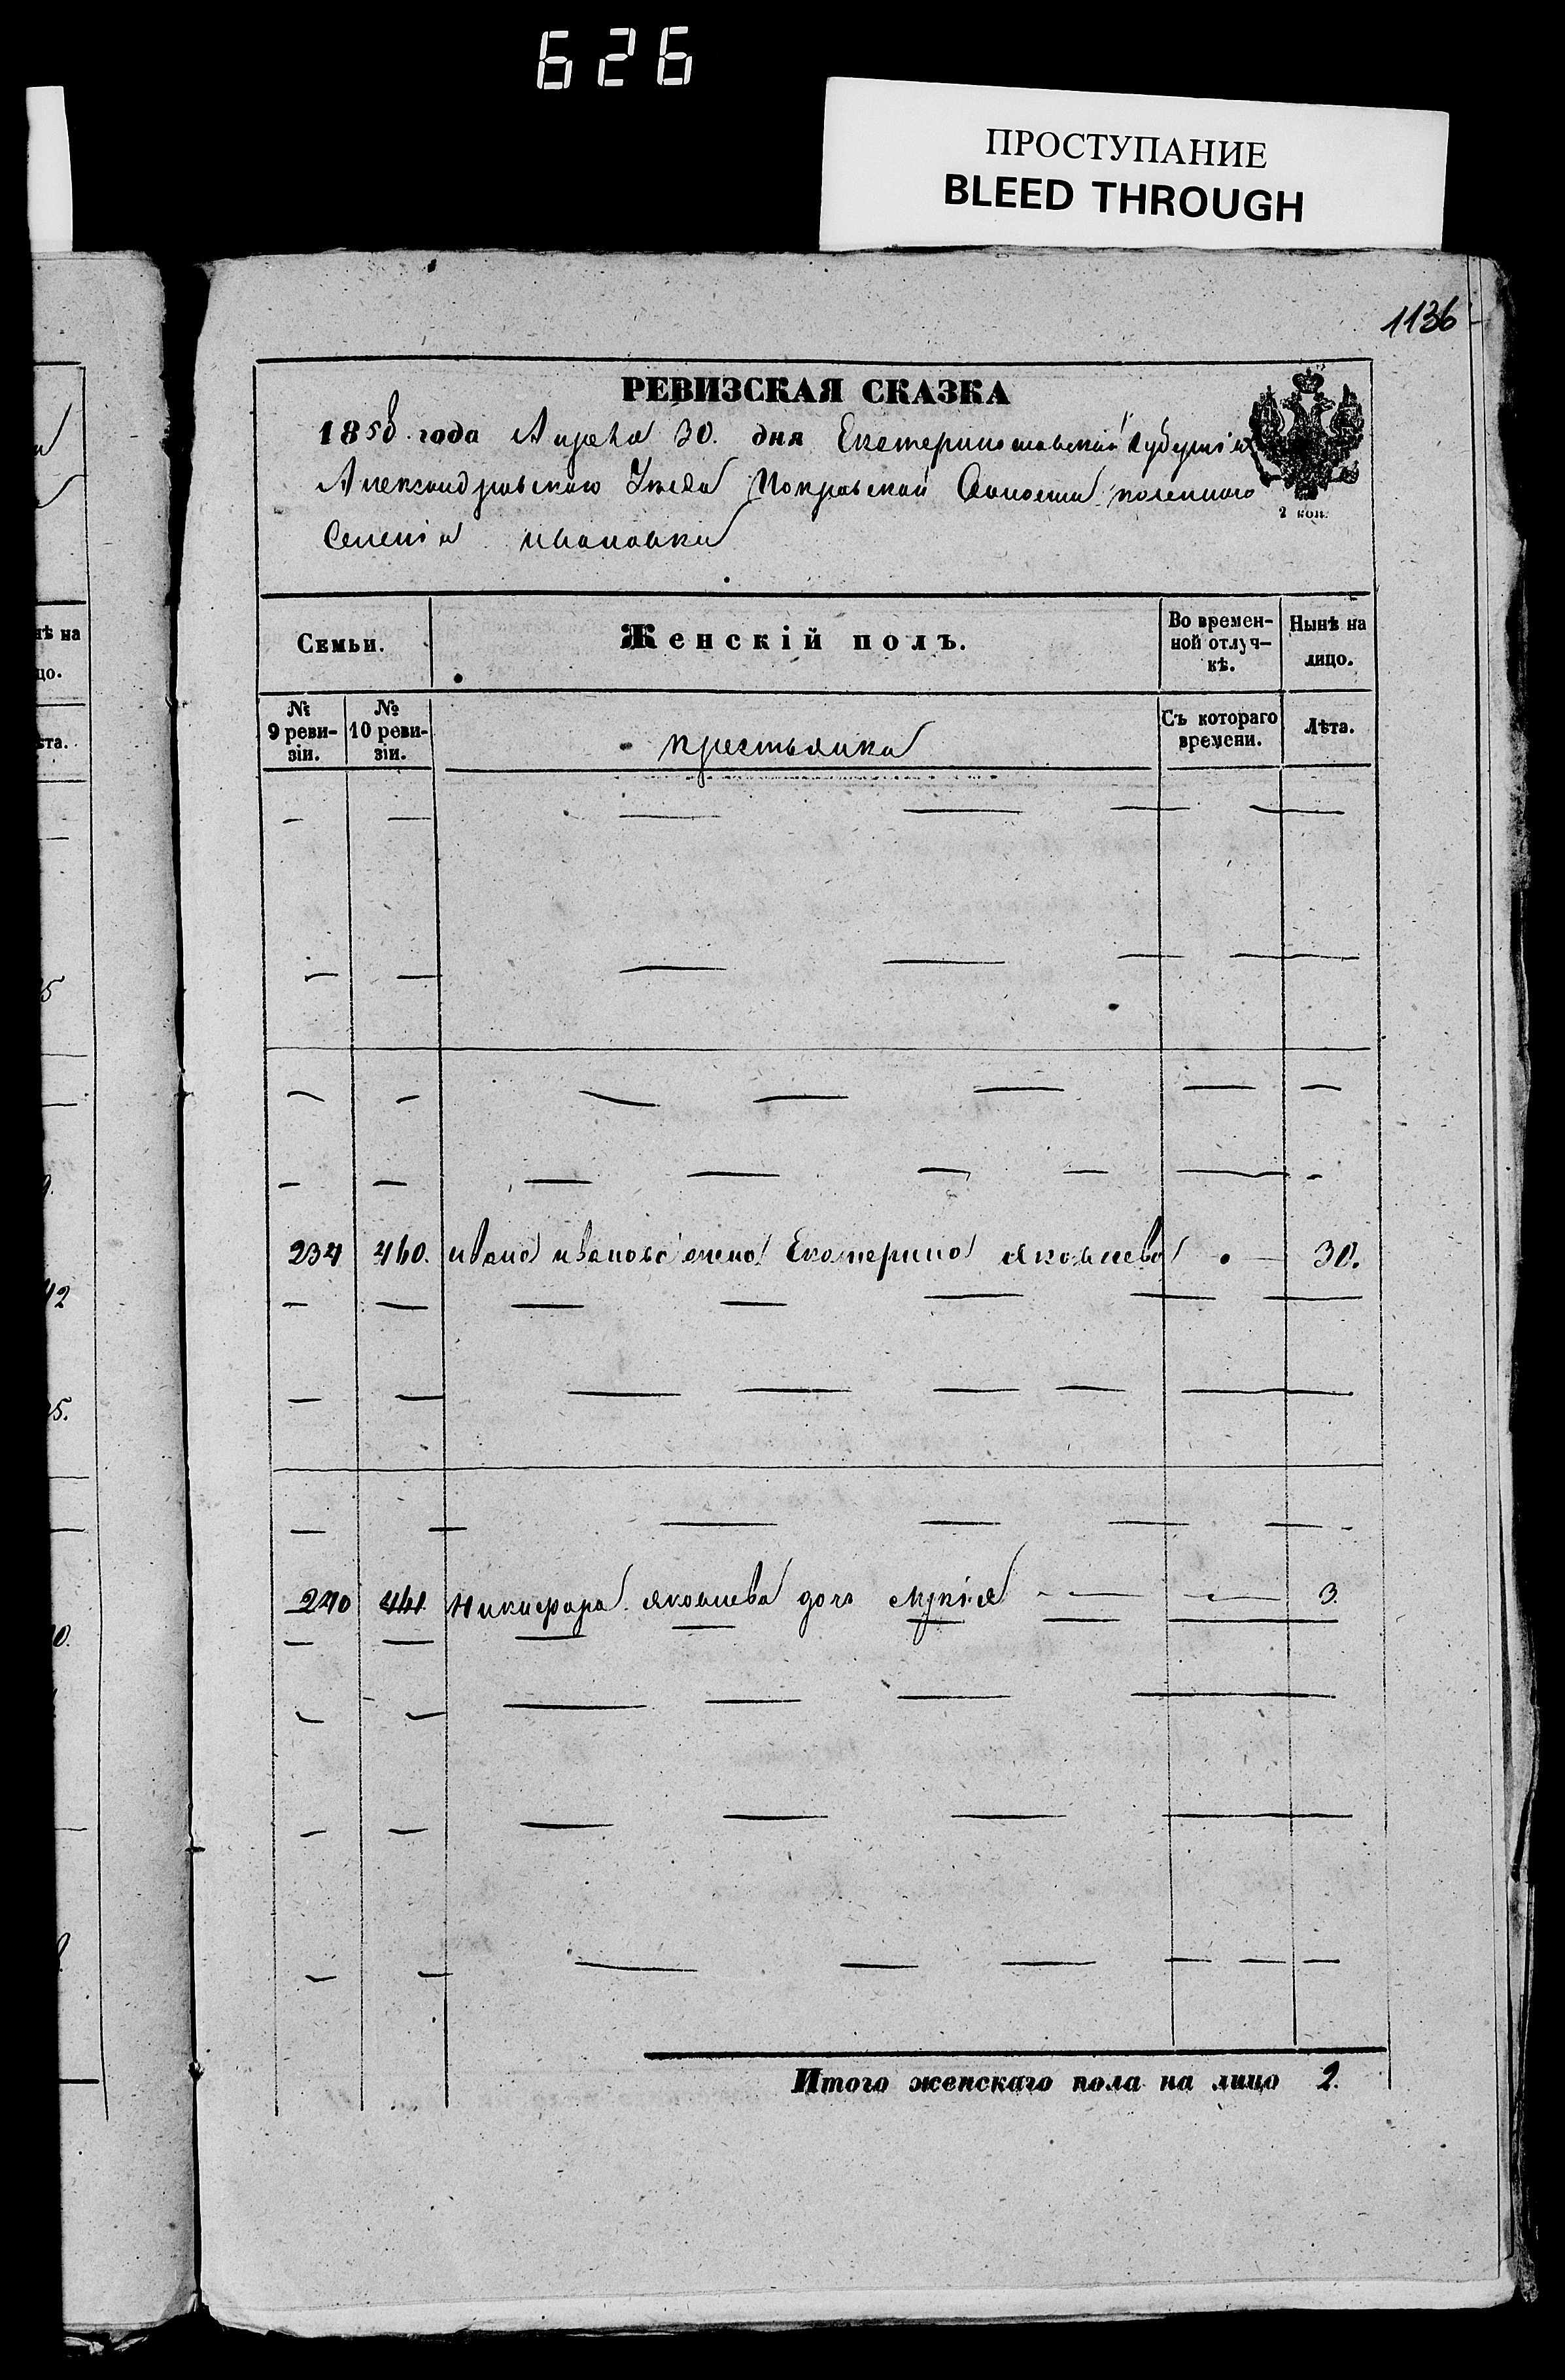 626
ПРОСТУПАНИЕ
BLEED THROUGH
1136
РЕВИЗСКАЯ СКАЗКА
1858 года Апреля 30. дня Екатеринославской Губерніи
Александровскаго Уезда Покровской Волости казеннаго
Селенія ивановки
2 коп.
Семьи. Женскій полъ. Во временной отлучкѣ. Нынѣ на лицо.
№ 9 ревизіи. № 10 ревизіи. крестьянка Съ котораго времени. Лѣта.
234 460. ивана иванова жена Екатерина яковлева 30.
240 461 Никифора яковлева дочь 3.
Итого женскаго пола на лицо 2.